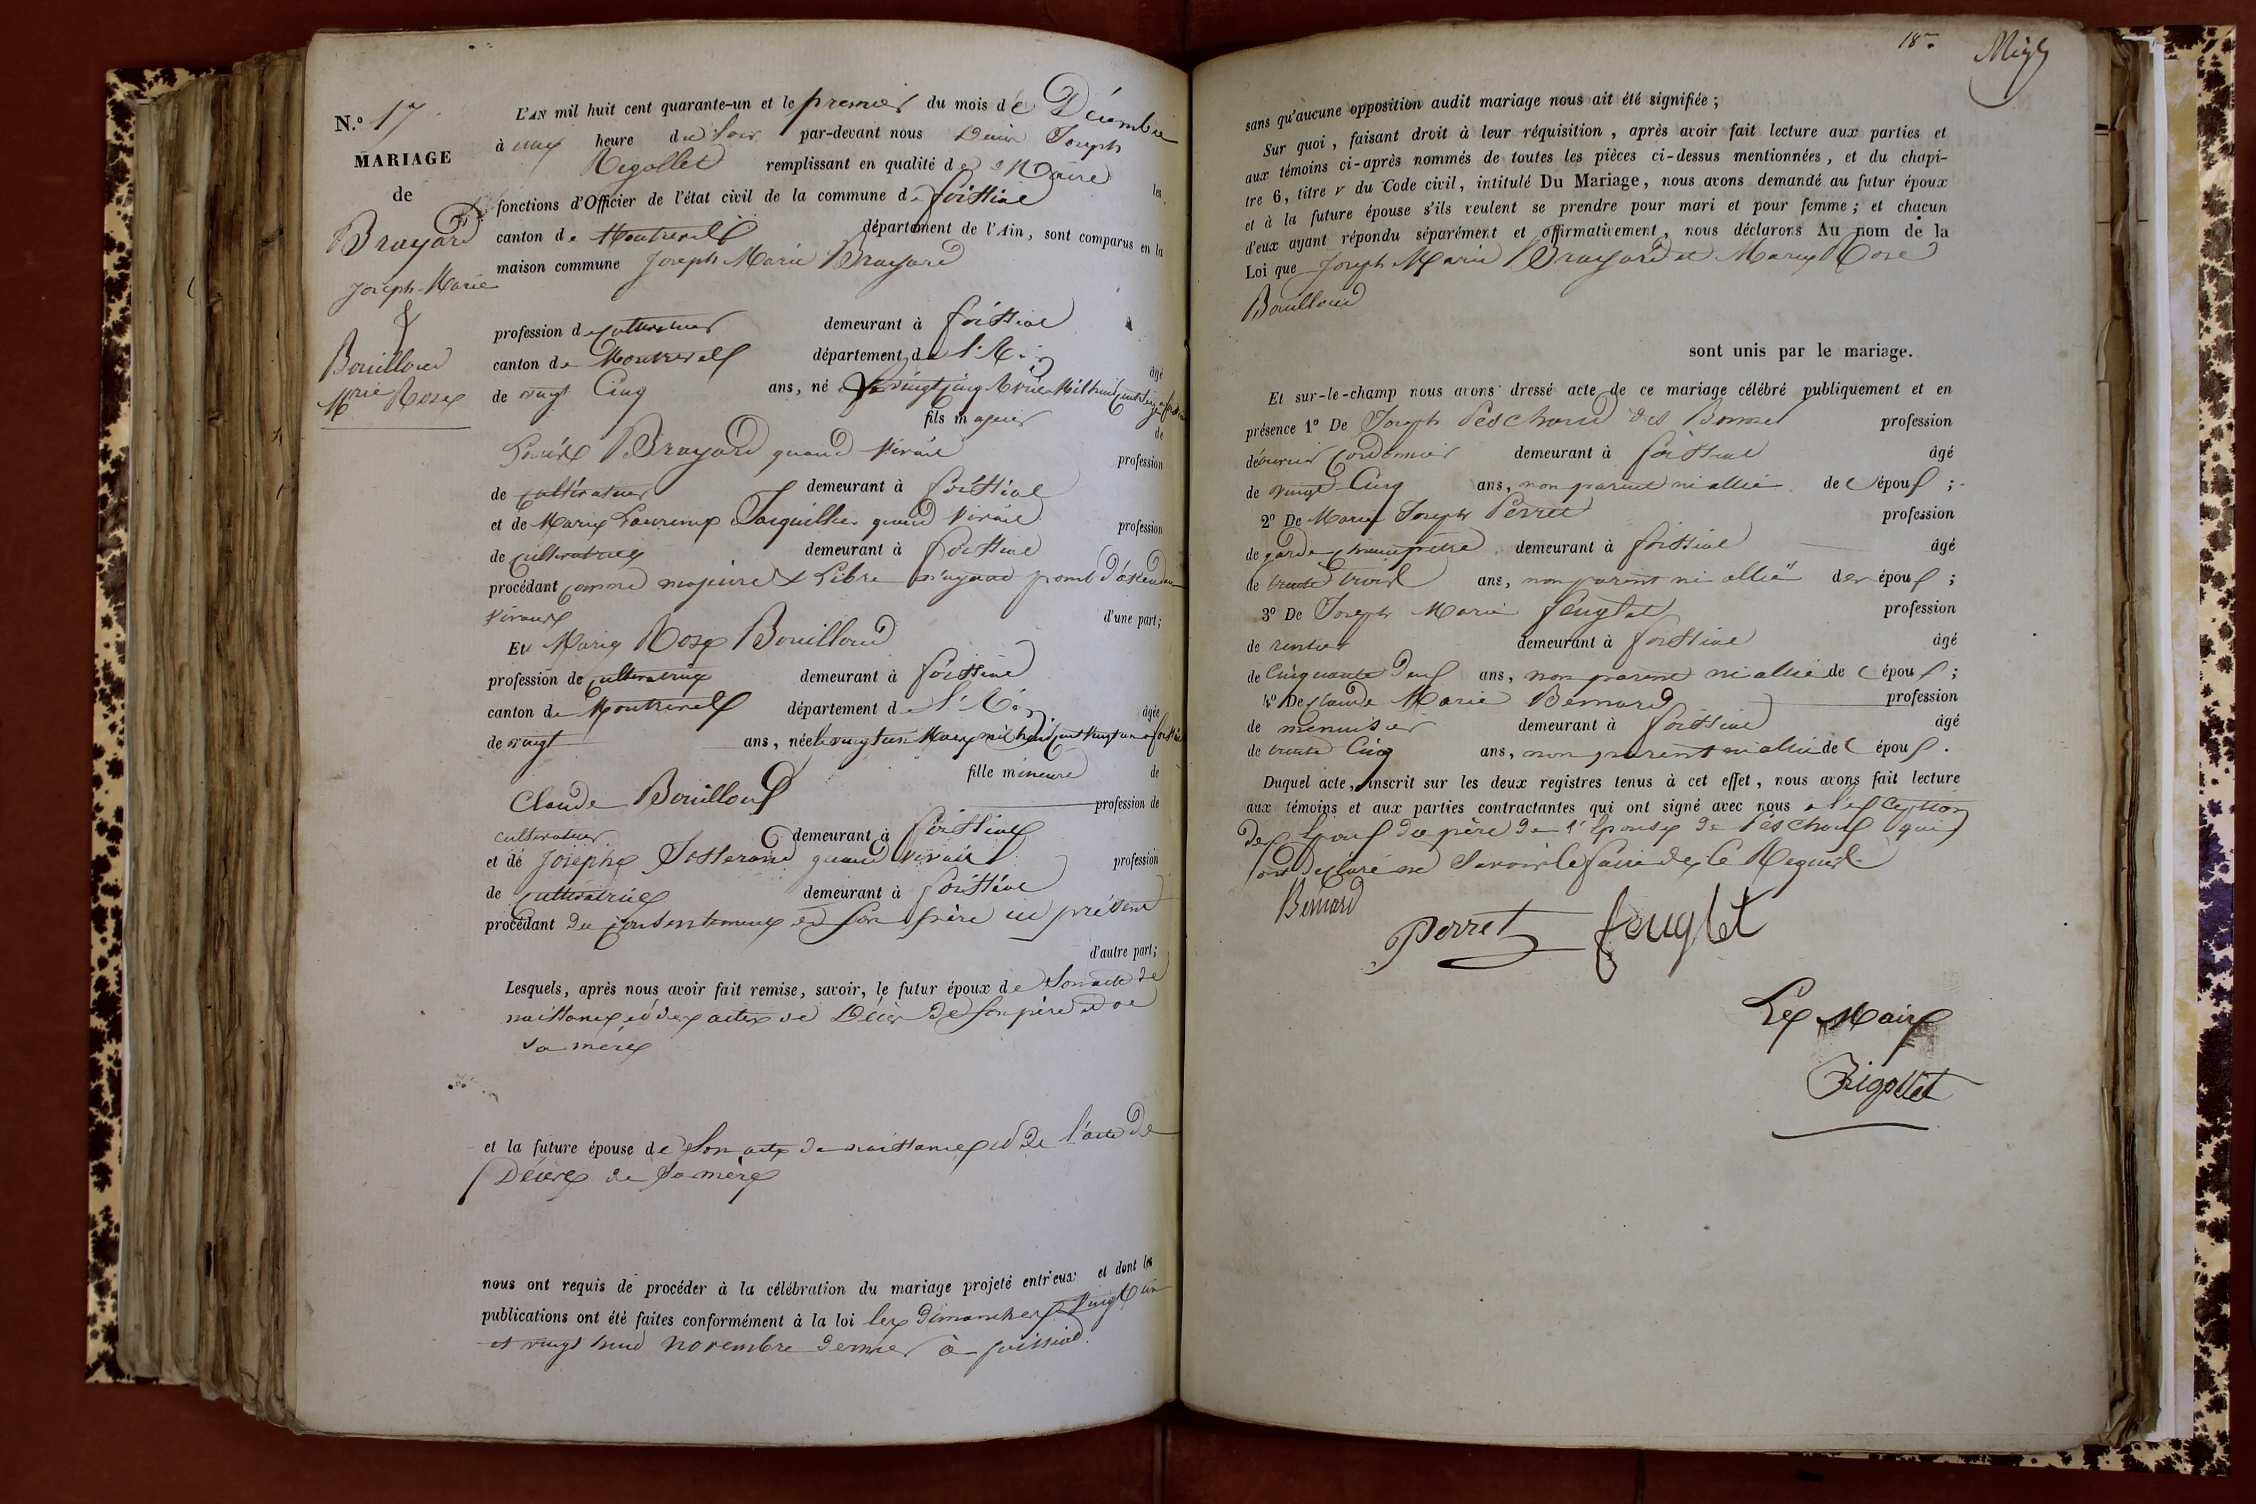 N.º 17
MARIAGE
de
Brayard
Joseph-Marie
&
Bouilloud
Mrie Rose
L'AN mil huit cent quarante-un et le premier du mois de Décembre
à une heure du soir par-devant nous Denis Joseph
Rigollet remplissant en qualité de Maire les
fonctions d'Officier de l'état civil de la commune de foissiat
canton de Montrevel département de l'Ain, sont comparus en la
maison commune Joseph Marie Brayard
profession de cultivateur demeurant à foissiat
canton de Montrevel département de l'Ain âgé
de vingt Cinq ans, né le vingt cinq Mil huit cent seize à
fils majeur de
Brayard quand vivait profession
de cultivateur demeurant à foissiat
et de Marie Laurence Jacquillier quand vivait profession
de cultivatrice demeurant à foissiat
procédant comme majeur & Libre n'ayant point d'ascendans
vivants d'une part;
Et Marie Rose Bouilloud
profession de cultivatrice demeurant à foissiat
canton de Montrevel département de l'Ain âgée
de vingt ans, née le vingt un Mars mil huit cent vingt un à foissiat
fille mineure de
Claude Bouilloud profession de
cultivateur demeurant à foissiat
et de Josephe quand vivait profession
de cultivatrice demeurant à foissiat
procédant du consentement de son père ici présent
d'autre part;
Lesquels, après nous avoir fait remise, savoir, le futur époux de son acte de
naissance et des actes de Décès de son père et de
sa mère
et la future épouse de son acte de naissance et de l'acte de
Décès de sa mère
nous ont requis de procéder à la célébration du mariage projeté entr'eux et dont les
publications ont été faites conformément à la loi les dimanches vingt un
et vingt huit novembre dernier à foissiat.
18
sans qu'aucune opposition audit mariage nous ait été signifiée;
Sur quoi, faisant droit à leur réquisition, après avoir fait lecture aux parties et
aux témoins ci-après nommés de toutes les pièces ci-dessus mentionnées, et du chapi-
tre 6, titre v du Code civil, intitulé Du Mariage, nous avons demandé au futur époux
et à la future épouse s'ils veulent se prendre pour mari et pour femme; et chacun
d'eux ayant répondu séparément et affirmativement, nous déclarons Au nom de la
Loi que Joseph Marie Brayard et Marie Rose
Bouilloud
sont unis par le mariage.
Et sur-le-champ nous avons dressé acte de ce mariage célébré publiquement et en
présence 1º De Joseph Peschoud profession
de cordonnier demeurant à foissiat âgé
de vingt Cinq ans, non parent ni allié de l'époux;
2º De Marie Joseph Perret profession
de garde champêtre demeurant à foissiat âgé
de trente trois ans, non parent ni allié des époux;
3º De Joseph Marie feuglet profession
de rentier demeurant à foissiat âgé
de Cinquante Deux ans, non parent ni allié des époux;
4º De Claude Marie Bernard profession
de menuisier demeurant à foissiat âgé
de trente Cinq ans, non parent ni allié des époux.
Duquel acte, inscrit sur les deux registres tenus à cet effet, nous avons fait lecture
aux témoins et aux parties contractantes qui ont signé avec nous à l'exception
des époux du père de l'épouse de Peschoud qui
ont déclaré ne savoir le faire de ce Requis
Bernard
Perret feuglet
Le Maire
Rigollet